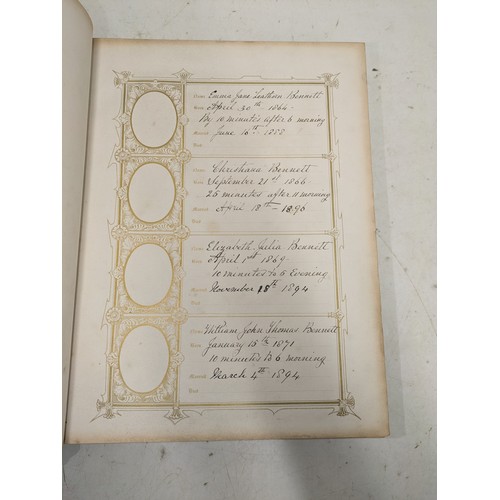 Name: Emma Jane Leathern Bennett
Born: April 30th 1864
By 10 minutes after 6 morning
Married: June 16th 1888
Died:
Name: Christiana Bennett
Born: September 21st 1866
25 minutes after 11 morning
Married: April 18th - 1896
Died:
Name: Elizabeth Julia Bennett
Born: April 1st 1869
10 minutes to 6 Evening
Married: November 18th 1894
Died:
Name: William John Thomas Bennett
Born: January 15th 1871
10 minutes B 6 morning
Married: March 4th 1894
Died: